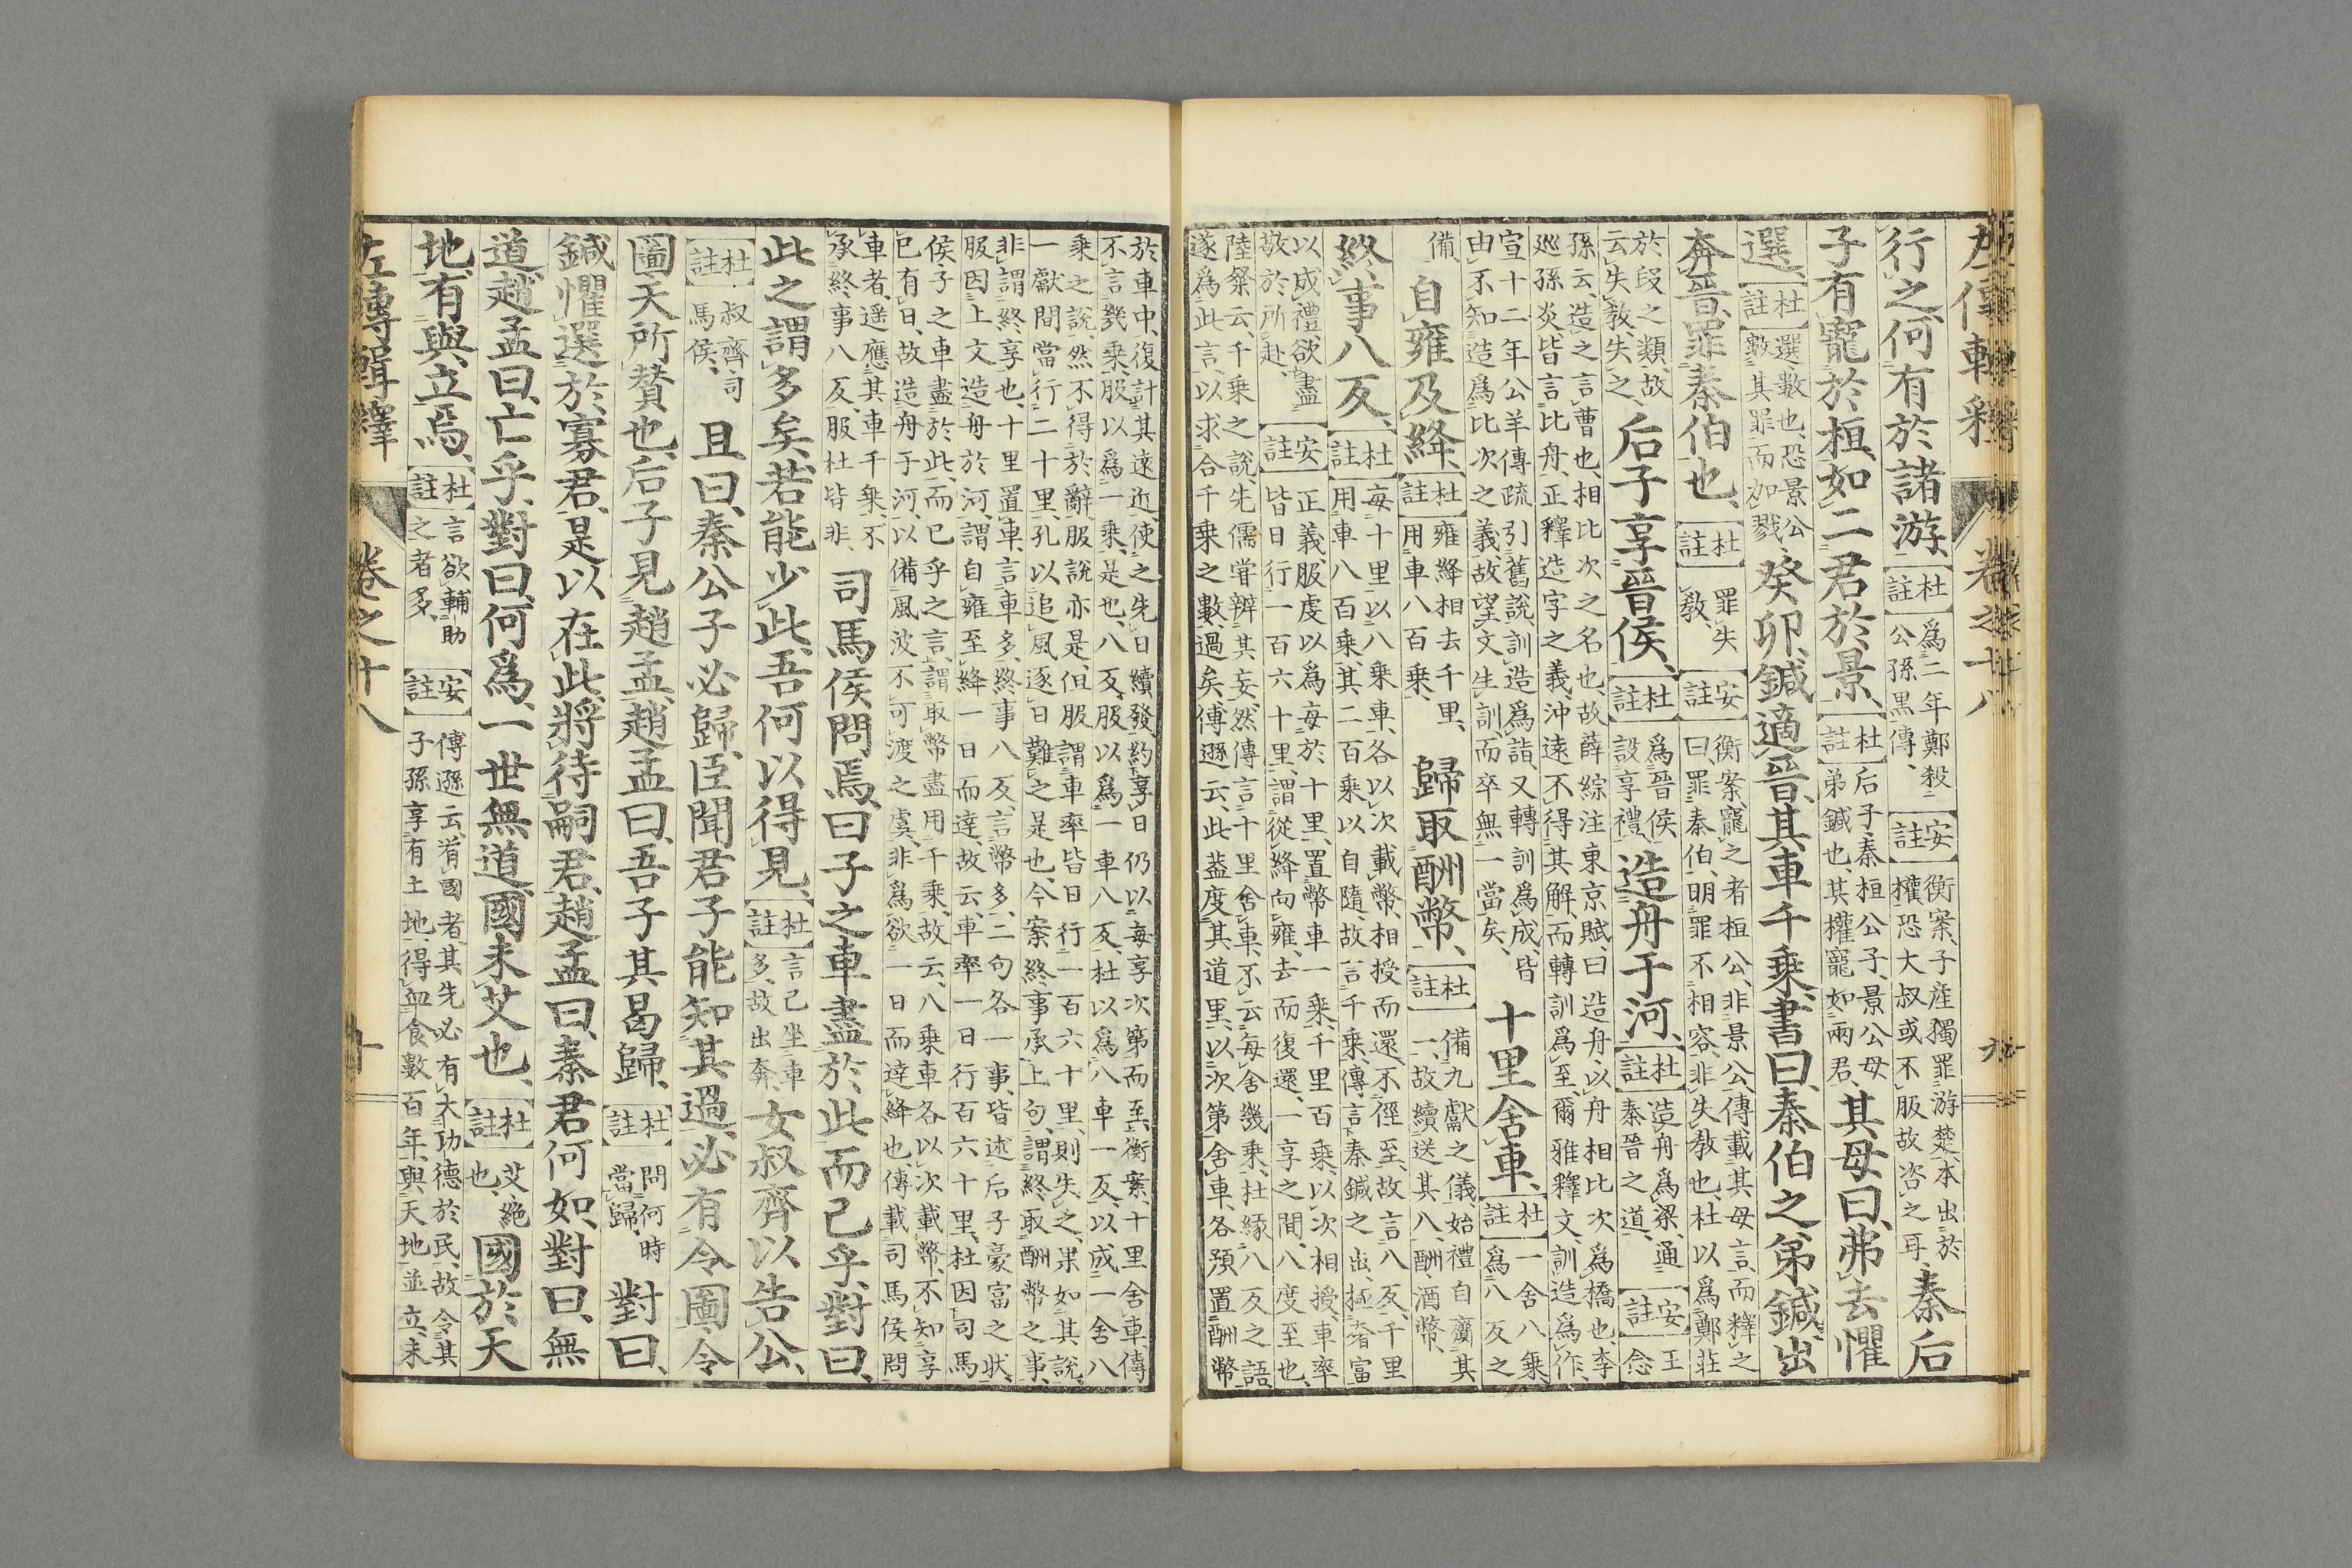 左傳輯釋 卷之十八 九
行之何有於諸游、杜註爲二年鄭殺公孫黑傳、安註衡案、子產獨罪游楚、本出於權恐大叔或不服故咨之耳、秦后
子有寵於桓、如二君於景、杜註后子秦桓公子、景公母弟鍼也、其權寵如兩君、其母曰、弗去懼
選、杜註選數也、恐景公數其罪而加戮、癸卯、鍼適晉、其車千乘、書曰、秦伯之弟鍼出
奔晉、罪秦伯也、杜註罪失教、安註衡案、寵之者桓公、非景公、傳載其母言、而釋之曰罪秦伯、明罪不相容、非失教也、杜以爲鄭莊
於段之類、故云失教、失之、后子享晉侯、杜註爲晉侯設享禮、造舟于河、杜註造舟爲梁、通秦晉之道、安註王念
孫云、造之言曹也、相比次之名也、故薛綜注東京賦、曰造舟、以舟相比次爲橋也、李巡孫炎、皆言比舟、正釋造字之義、沖遠不得其解、而轉訓爲至、爾雅釋文、訓造爲作、
宣十二年公羊傳疏、引舊說、訓造爲詣、又轉訓爲成、皆由不知造爲比次之義、故望文生訓而卒無一當矣、十里舍車、杜註一舍八乘爲八反之
備、自雍及絳、杜註雍絳相去千里、用車八百乘、歸取酬幣、杜註備九獻之儀、始禮自齎其一、故續送其八、酬酒幣、
終事八反、杜註每十里以八乘車、各以次載幣、相授而還、不徑至、故言八反、千里用車八百乘、其二百乘以自隨、故言千乘、傳言秦鍼之出、極奢富
以成禮欲盡敬於所赴、安註正義、服虔以爲每於十里、置幣車一乘、千里百乘、以次相授、車率皆日行一百六十里、謂從絳向雍、去而復還、一享之間、八度至也、
陸粲云、千乘之說、先儒嘗辨其妄、然傳言十里舍車、不云每舍幾乘、杜緣八反之語遂爲此言、以求合千乘之數、過矣、傅遜云、此蓋度其道里、以次第舍車、各預置酬幣
於車中、復計其遠近、使之先日續發、約享日仍以每享次第而至、衡案、十里舍車、傳不言幾乘、服以爲一乘、是也、八反、服以爲一車八反、杜以爲八車一反、以成一舍八
乘之說、然不得於辭、服說亦是、但服謂車率皆日行一百六十里、則失之、果如其說、一獻間當行二十里、孔以追風逐日難之是也、今案終事承上句、謂終取酬幣之事、
非謂終享也、十里置車、言車多、終事八反、言幣多、二句各一事、皆述后子豪富之狀、服因上文造舟於河、謂自雍至絳一日而達、故云、車率一日行百六十里、杜因司馬
侯子之車盡於此、而已乎之言、謂取幣盡用千乘、故云、八乘車各以次載幣、不知享已有日、故造舟于河、以備風波不可渡之虞、非爲欲一日而達絳也、傳載司馬侯問
車者、遥應其車千乘、不承終事八反、服杜皆非、司馬侯問焉、曰子之車盡於此而已乎、對曰、
此之謂多矣、若能少此、吾何以得見、杜註言己坐車多、故出奔、女叔齊以告公、
杜註叔齊、司馬侯、且曰、秦公子必歸、臣聞君子能知其過、必有令圖、令
圖、天所贊也、后子見趙孟、趙孟曰、吾子其曷歸、杜註問何時當歸、對曰、
鍼懼選於寡君、是以在此、將待嗣君、趙孟曰、秦君何如、對曰、無
道、趙孟曰、亡乎、對曰、何爲、一世無道、國未艾也、杜註艾絕也、國於天
地、有與立焉、杜註言欲輔助之者多、安註傅遜云、有國者其先必有大功德於民、故令其子孫享有土地、得血食數百年、與天地並立、未
左傳輯釋 卷之十八 十